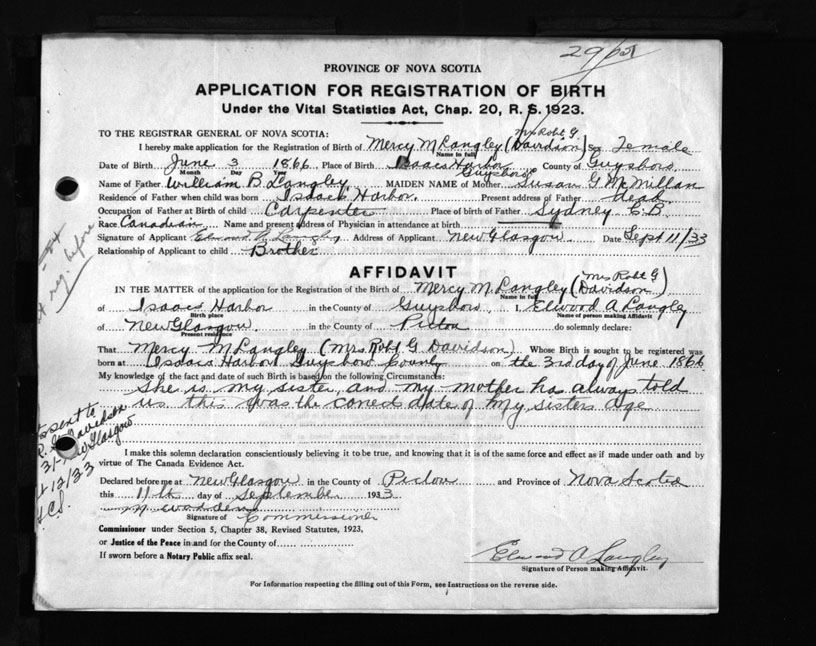 PROVINCE OF NOVA SCOTIA
APPLICATION FOR REGISTRATION OF BIRTH
Under the Vital Statistics Act, Chap. 20, R. S. 1923.
TO THE REGISTRAR GENERAL OF NOVA SCOTIA:
Mrs Robt G
I hereby make application for the Registration of Birth of Mercy M Langley (Davidson) Sex Female
Name in full
Date of Birth June 3 1866 Place of Birth Isaacs Harbor Guysboro County of Guysboro
Month Day Year
Name of Father William B Langley MAIDEN NAME of Mother Susan G McMillan
Residence of Father when child was born Isaacs Harbor. Present address of Father dead
Occupation of Father at Birth of child Carpenter Place of birth of Father Sydney C.B.
Race Canadian Name and present address of Physician in attendance at birth
Signature of Applicant Elwood A Langley Address of Applicant New Glasgow. Date Sept 11/33
Relationship of Applicant to child Brother
AFFIDAVIT
Mrs Robt G
IN THE MATTER of the application of the Registration of the Birth of Mercy M Langley (Davidson)
Name in full
of Isaacs Harbor in the County of Guysboro I, Elwood A Langley
Birth place Name of person making Affidavit
of New Glasgow. in the County of Pictou do solemnly declare:
Present residence
That Mercy M Langley (Mrs Robt G Davidson) Whose Birth is sought to be registered was
born at Isaacs Harbor Guysboro County on the 3rd day of June 1866
My knowledge of the fact and date of such Birth is based on the following Circumstances:
She is my sister and my mother has always told
us this was the correct date of my sisters age
I make this solemn declaration conscientiously believing it to be true, and knowing that it is of the same force and effect as if made under oath and by
virtue of The Canada Evidence Act.
Declared before me at New Glasgow in the County of Pictou and Province of Nova Scotia
this 11th day of September 1933
Signature of Commissioner
Commissioner under Section 5, Chapter 38, Revised Statutes, 1923,
or Justice of the Peace in and for the County of
If sworn before a Notary Public affix seal.
Elwood A Langley
Signature of Person making Affidavit.
For Information respecting the filling out of this Form, see Instructions on the reverse side.
reg. before
sent to
R. G. Davidson
New Glasgow